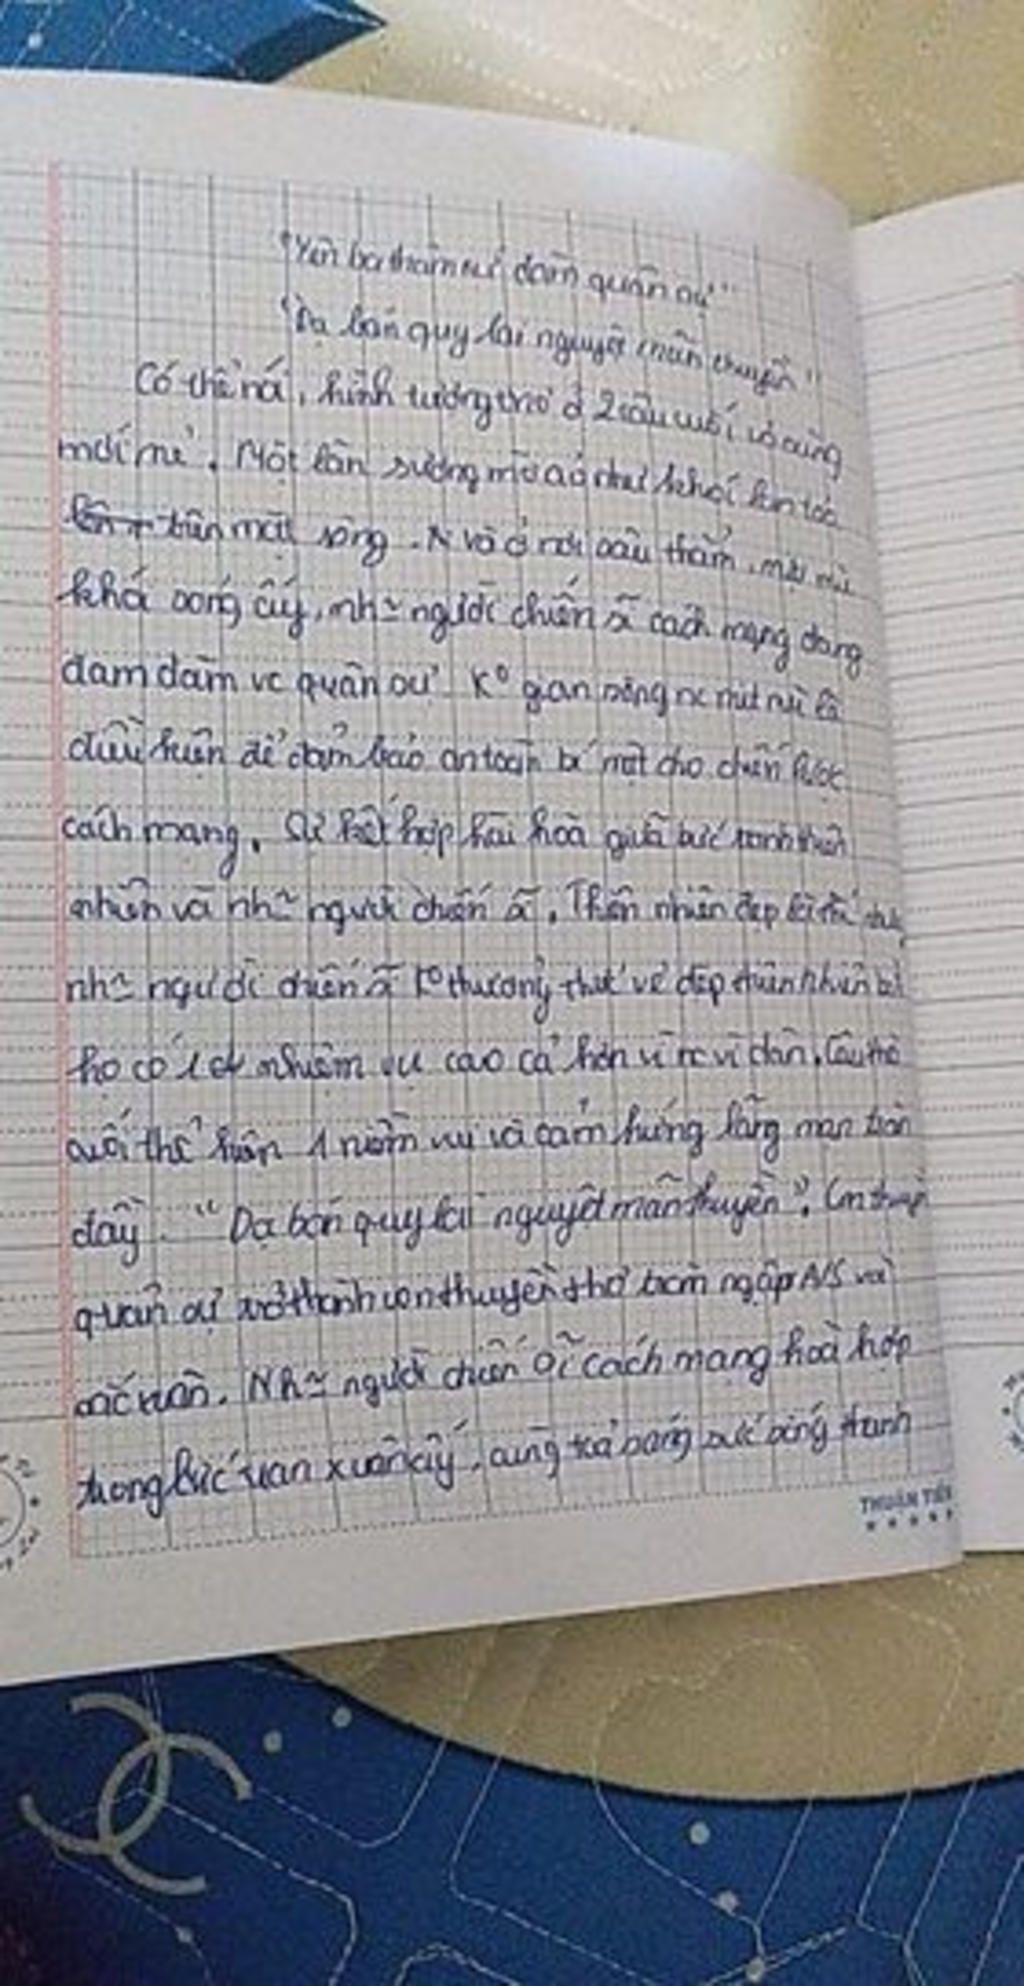 "Yên ba thâm xứ đàm quân sự"
"Dạ bán quy lai nguyệt mãn thuyền"
Có thể nói, hình tượng thơ ở 2 câu cuối vô cùng
mới mẻ. Một làn sương mờ ảo như khói lan toả
trên mặt sông. Và ở nơi sâu thẳm, mịt mù
khói sóng ấy, nh~ người chiến sĩ cách mạng đang
đàm đạm vc quân sự. K° gian sông nc mịt mù là
điều kiện để đảm bảo an toàn bí mật cho chiến lược
cách mạng. Sự kết hợp hài hoà giữa bức tranh thiên
nhiên và nh~ người chiến sĩ. Thiên nhiên đẹp là thế
nh~ người chiến sĩ k° thưởng thức vẻ đẹp thiên nhiên bởi
họ có 1 nhiệm vụ cao cả hơn vì nc vì dân. Câu thơ
cuối thể hiện 1 niềm vui và cảm hứng lãng mạn tràn
đầy. "Dạ bán quy lai nguyệt mãn thuyền". Con thuyền
quân sự trở thành con thuyền thơ tràn ngập A/S và
sắc xuân. Nh~ người chiến sĩ cách mạng hoà hợp
trong bức xuân ấy, cùng toả sáng sức sống thanh
THUẬN TIẾN